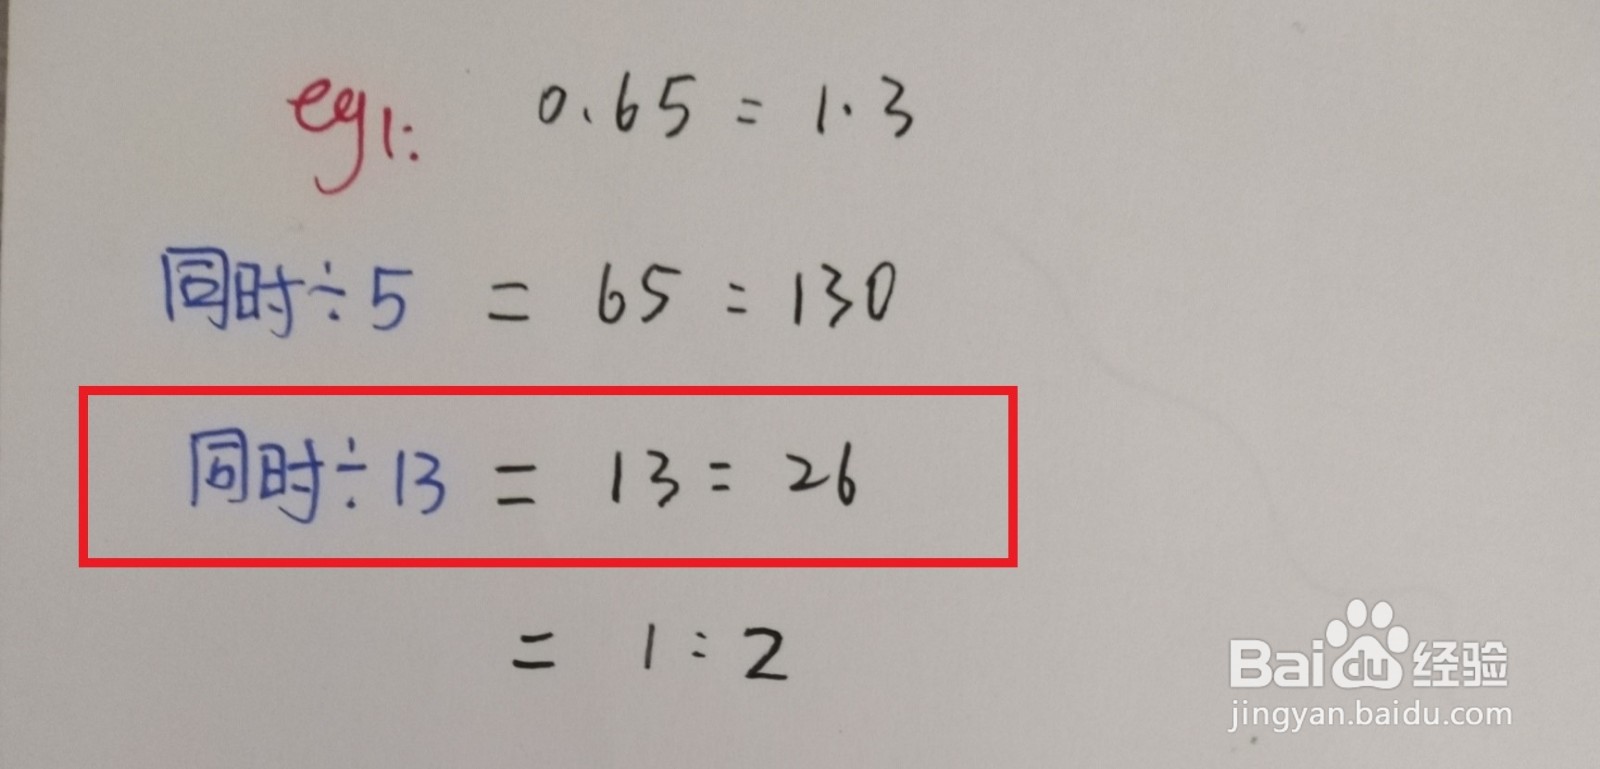 eg1: 0.65 : 1.3
同时÷5 = 65 : 130
同时÷13 = 13 : 26
= 1 : 2
Baidu经验
jingyan.baidu.com